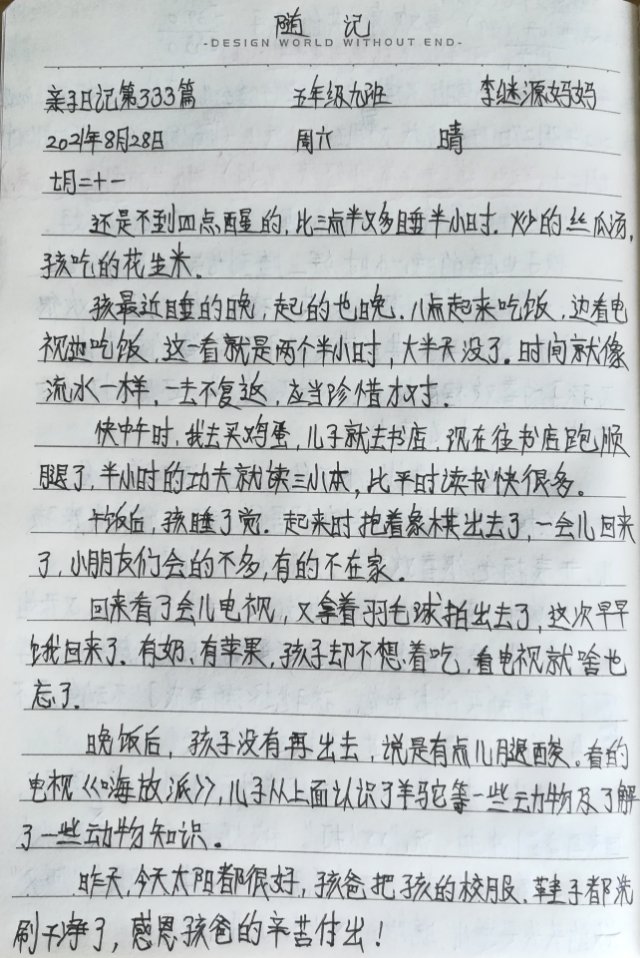 随 记
-DESIGN WORLD WITHOUT END-
亲子日记第333篇 五年级九班 李继源妈妈
2021年8月28日 周六 晴
七月二十一
还是不到四点醒的,比三点半又多睡半小时.炒的丝瓜汤,
孩吃的花生米.
孩最近睡的晚,起的也晚.八点起来吃饭,边看电
视边吃饭,这一看就是两个半小时,大半天没了.时间就像
流水一样,一去不复返,应当珍惜才对.
快中午时,我去买鸡蛋,儿子就去书店,现在往书店跑顺
腿了,半小时的功夫就读三小本,比平时读书快很多。
午饭后,孩睡了觉.起来时抱着象棋出去了,一会儿回来
了,小朋友们会的不多,有的不在家.
回来看了会儿电视,又拿着羽毛球拍出去了,这次早早
饿我回来了.有奶、有苹果,孩子却不想着吃,看电视就啥也
忘了.
晚饭后,孩子没有再出去,说是有点儿腿酸.看的
电视《嗨放派》,儿子从上面认识了羊驼等一些动物及了解
了一些动物知识。
昨天,今天太阳都很好,孩爸把孩的校服、鞋子都洗
刷干净了,感恩孩爸的辛苦付出!